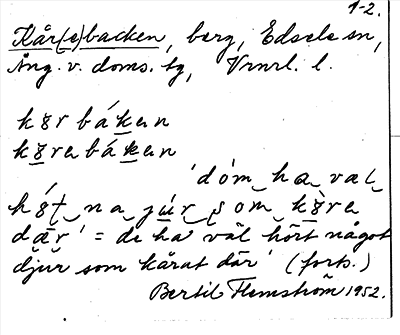 1-2.
Kår(e)backen, berg, Edsele sn,
Ång. v. doms. tg, Vrnrl. l.
kȣrbáken
kȣrebáken
'dóm ha væl
hȣ́ṭ na júr ṣom kȣre
dær' = 'de ha väl hört något
djur som kårat där' (forts.)
Bertil Flemström 1952.